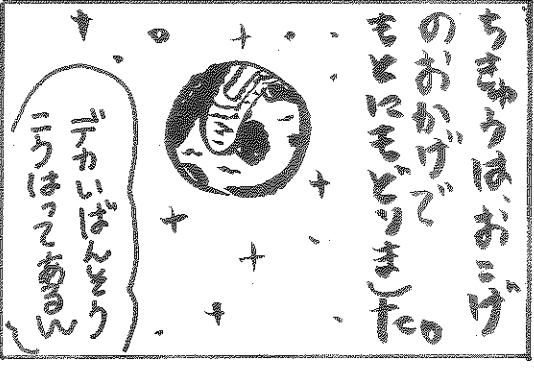 ちきゅうは、おこげ
のおかげで
もとにもどりました。
デカいばんそう
こうはってあるん